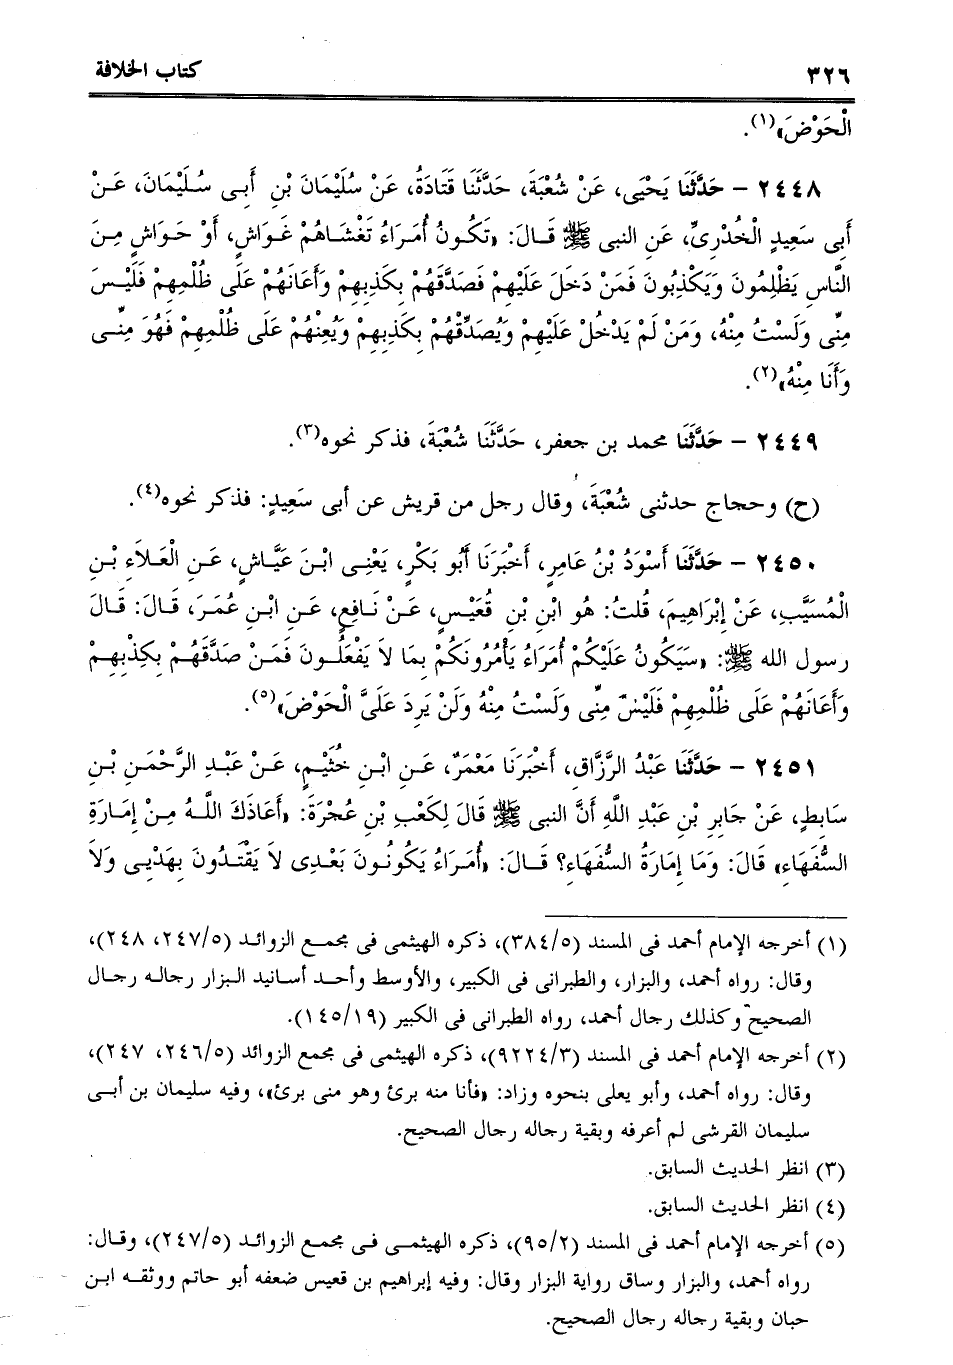 ٣٢٦ كتاب الخلافة
الْحَوْضَ»(١).
٢٤٤٨ - حَدَّثَنَا يَحْيَى، عَنْ شُعْبَةَ، حَدَّثَنَا قَتَادَةُ، عَنْ سُلَيْمَانَ بْنِ أَبِى سُلَيْمَانَ، عَنْ
أَبِى سَعِيدٍ الْخُدْرِىِّ، عَنِ النبى ﷺ قَالَ: «تَكُونُ أُمَرَاءُ تَغْشَاهُمْ غَوَاشٍ، أَوْ حَوَاشٍ مِنَ
النَّاسِ يَظْلِمُونَ وَيَكْذِبُونَ فَمَنْ دَخَلَ عَلَيْهِمْ فَصَدَّقَهُمْ بِكَذِبِهِمْ وَأَعَانَهُمْ عَلَى ظُلْمِهِمْ فَلَيْسَ
مِنِّى وَلَسْتُ مِنْهُ، وَمَنْ لَمْ يَدْخُلْ عَلَيْهِمْ وَيُصَدِّقْهُمْ بِكَذِبِهِمْ وَيُعِنْهُمْ عَلَى ظُلْمِهِمْ فَهُوَ مِنِّى
وَأَنَا مِنْهُ»(٢).
٢٤٤٩ - حَدَّثَنَا محمد بن جعفر، حَدَّثَنَا شُعْبَةَ، فذكر نحوه(٣).
(ح) وحجاج حدثنى شُعْبَةَ، وقال رجل من قريش عن أبى سَعِيدٍ: فذكر نحوه(٤).
٢٤٥٠ - حَدَّثَنَا أَسْوَدُ بْنُ عَامِرٍ، أَخْبَرَنَا أَبُو بَكْرٍ، يَعْنِى ابْنَ عَيَّاشٍ، عَنِ الْعَلاَءِ بْنِ
الْمُسَيَّبِ، عَنْ إِبْرَاهِيمَ، قُلتُ: هُو ابْنِ بْنِ قُعَيْسٍ، عَنْ نَافِعٍ، عَنِ ابْنِ عُمَرَ، قَالَ: قَالَ
رسول الله ﷺ: «سَيَكُونُ عَلَيْكُمْ أُمَرَاءُ يَأْمُرُونَكُمْ بِمَا لاَ يَفْعَلُونَ فَمَنْ صَدَّقَهُمْ بِكِذْبِهِمْ
وَأَعَانَهُمْ عَلَى ظُلْمِهِمْ فَلَيْسَ مِنِّى وَلَسْتُ مِنْهُ وَلَنْ يَرِدَ عَلَىَّ الْحَوْضَ»(٥).
٢٤٥١ - حَدَّثَنَا عَبْدُ الرَّزَّاقِ، أَخْبَرَنَا مَعْمَرٌ، عَنِ ابْنِ خُثَيْمٍ، عَنْ عَبْدِ الرَّحْمَنِ بْنِ
سَابِطٍ، عَنْ جَابِرِ بْنِ عَبْدِ اللَّهِ أَنَّ النبى ﷺ قَالَ لِكَعْبِ بْنِ عُجْرَةَ: «أَعَاذَكَ اللَّهُ مِنْ إِمَارَةِ
السُّفَهَاءِ» قَالَ: وَمَا إِمَارَةُ السُّفَهَاءِ؟ قَالَ: «أُمَرَاءُ يَكُونُونَ بَعْدِى لاَ يَقْتَدُونَ بِهَدْيِى وَلاَ
(١) أخرجه الإمام أحمد فى المسند (٣٨٤/٥)، ذكره الهيثمى فى مجمع الزوائد (٢٤٧/٥، ٢٤٨)،
وقال: رواه أحمد، والبزار، والطبرانى فى الكبير، والأوسط وأحد أسانيد البزار رجاله رجال
الصحيح وكذلك رجال أحمد، رواه الطبرانى فى الكبير (١٤٥/١٩).
(٢) أخرجه الإمام أحمد فى المسند (٩٢٢٤/٣)، ذكره الهيثمى فى مجمع الزوائد (٢٤٦/٥، ٢٤٧)،
وقال: رواه أحمد، وأبو يعلى بنحوه وزاد: «فأنا منه برئ وهو منى برئ»، وفيه سليمان بن أبى
سليمان القرشى لم أعرفه وبقية رجاله رجال الصحيح.
(٣) انظر الحديث السابق.
(٤) انظر الحديث السابق.
(٥) أخرجه الإمام أحمد فى المسند (٩٥/٢)، ذكره الهيثمى فى مجمع الزوائد (٢٤٧/٥)، وقال:
رواه أحمد، والبزار وساق رواية البزار وقال: وفيه إبراهيم بن قعيس ضعفه أبو حاتم ووثقه ابن
حبان وبقية رجاله رجال الصحيح.